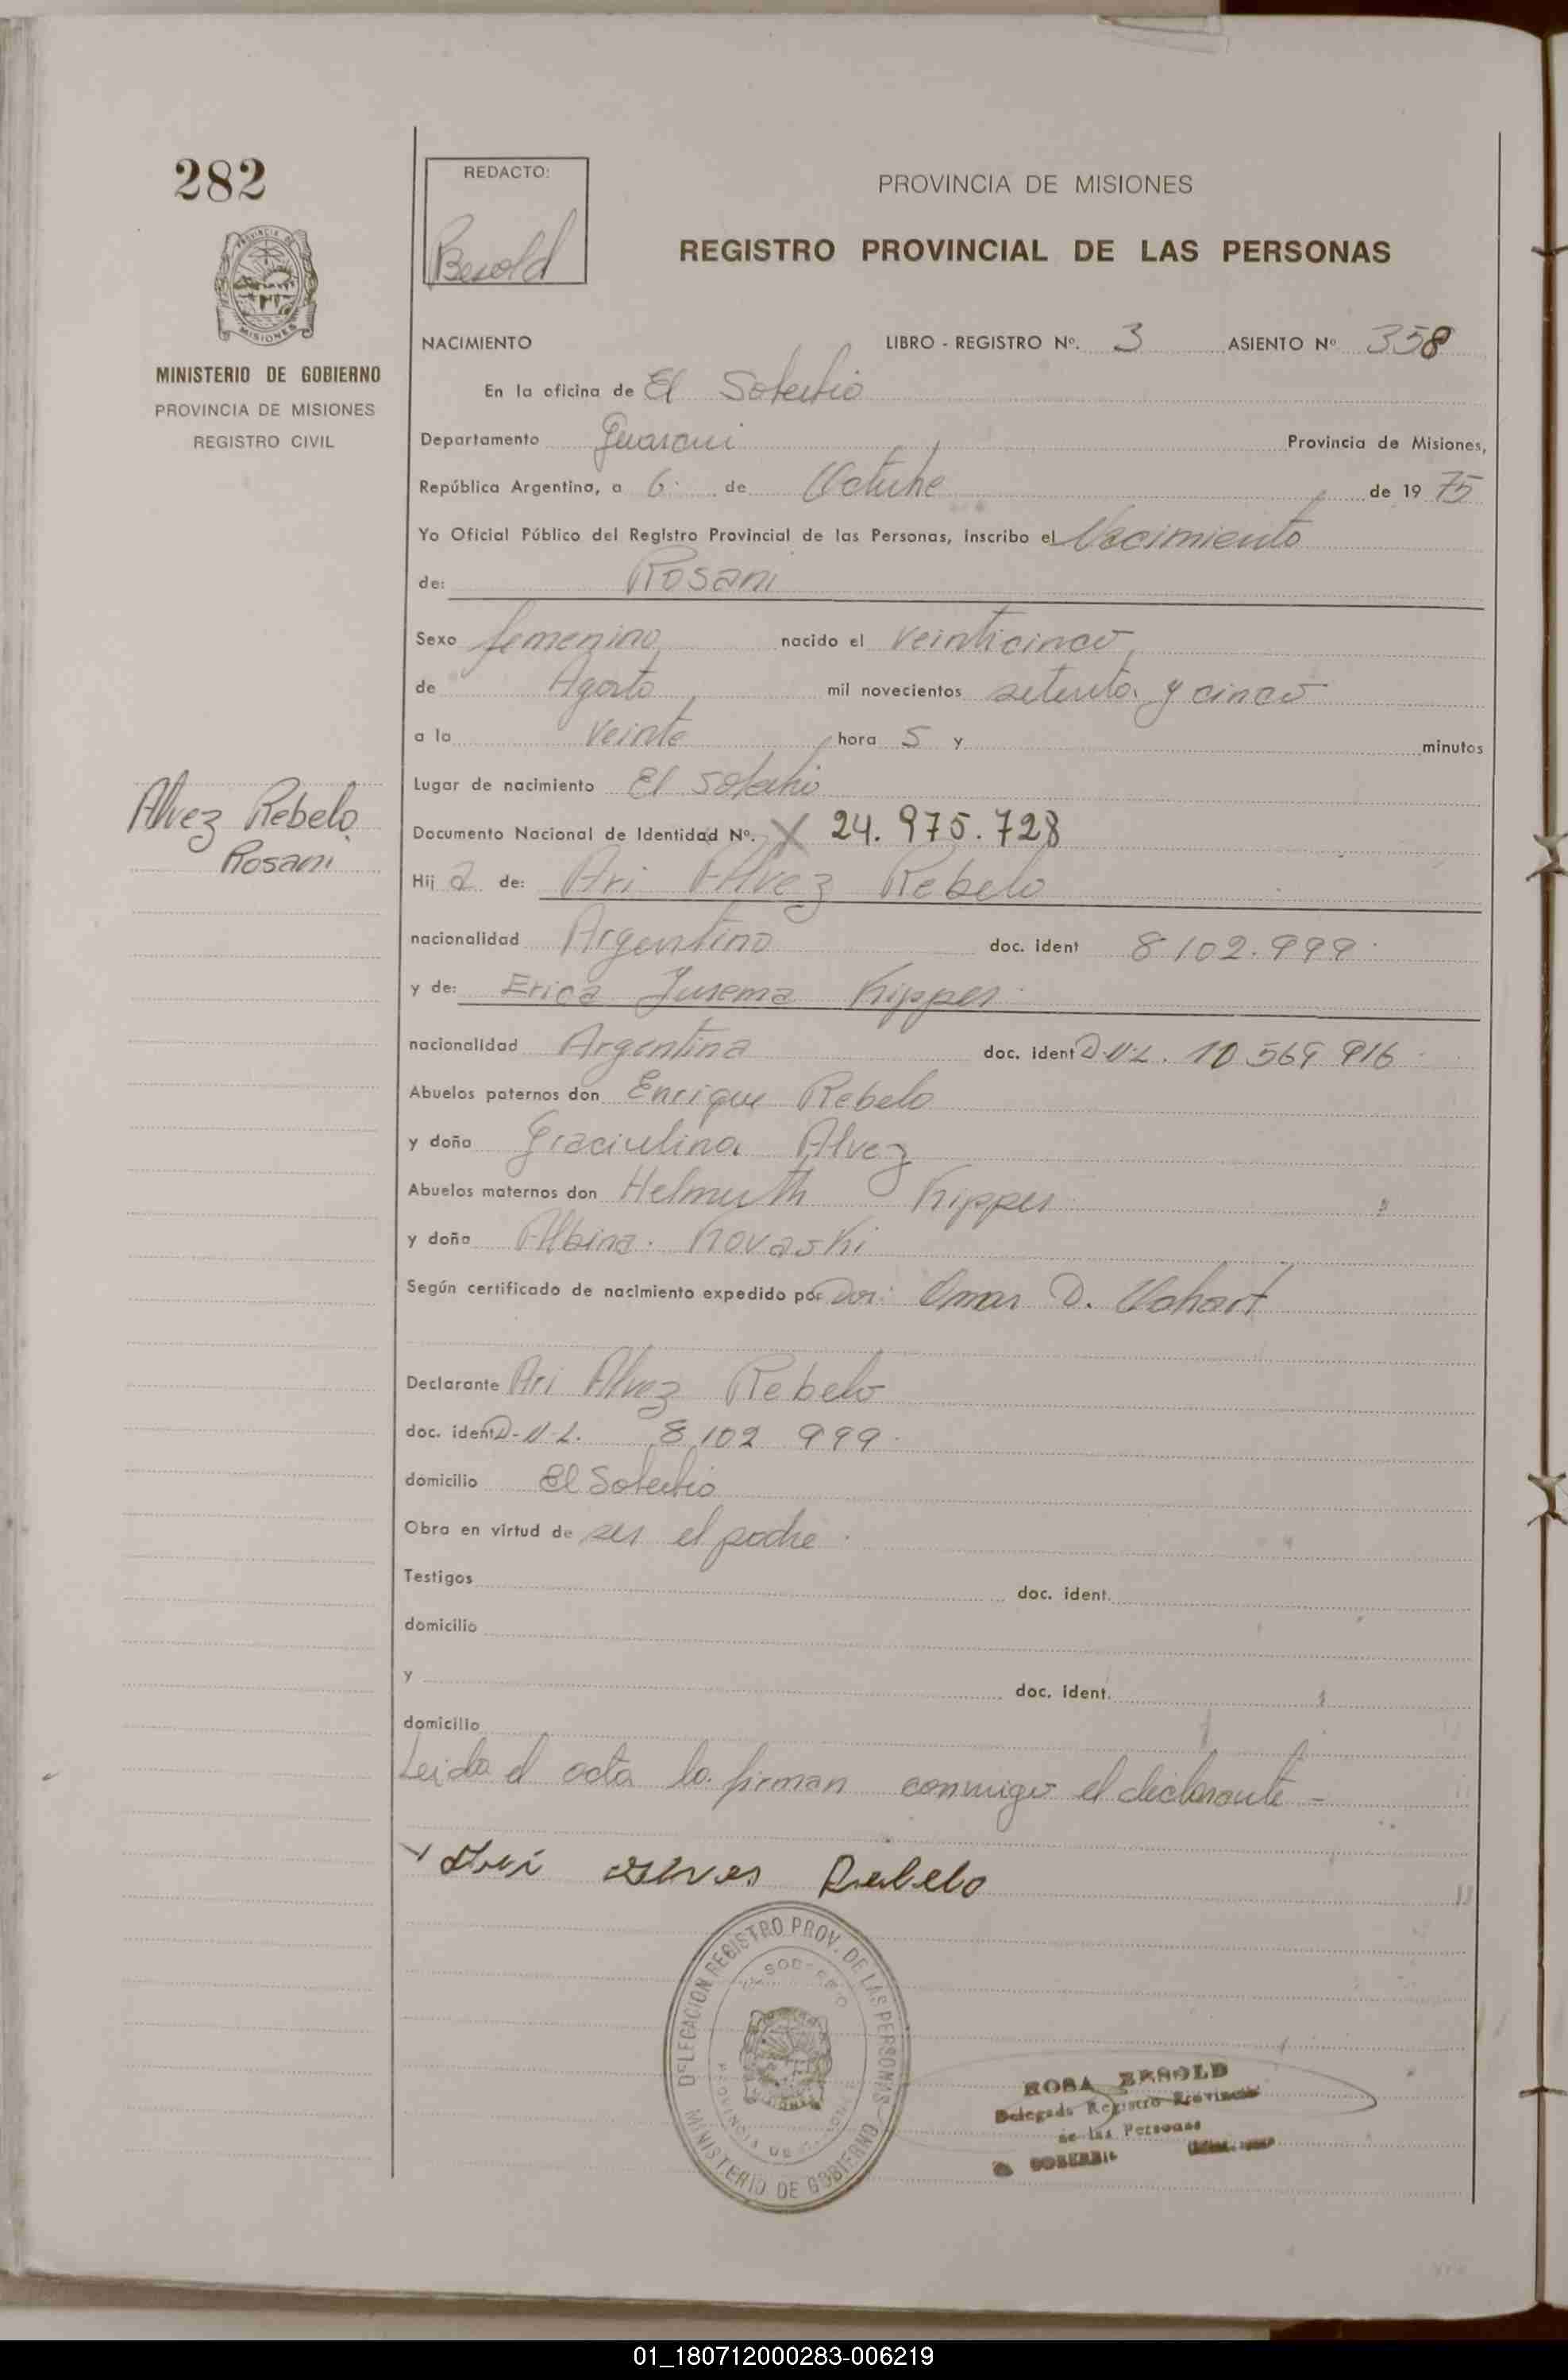 282
REDACTO:
Besold
PROVINCIA DE MISIONES
REGISTRO PROVINCIAL DE LAS PERSONAS
MISIONES
MINISTERIO DE GOBIERNO
PROVINCIA DE MISIONES
REGISTRO CIVIL
NACIMIENTO LIBRO - REGISTRO Nº. 3 ASIENTO Nº 358
En la oficina de El Soberbio
Departamento Guarani Provincia de Misiones,
República Argentina, a 6. de Octubre de 19 75
Yo Oficial Público del Registro Provincial de las Personas, inscribo el Nacimiento
de: Rosani
Sexo femenino nacido el veinticinco
de Agosto mil novecientos setenta y cinco
a la veinte hora 5 y minutos
Lugar de nacimiento El Soberbio
Alvez Rebelo
Rosani
Documento Nacional de Identidad Nº. X 24.975.728
Hij a de: Ari Alvez Rebelo
nacionalidad Argentino doc. ident 8102.999.
y de: Erica Jurema Kipper
nacionalidad Argentina doc. ident D.N.I. 10 569 916
Abuelos paternos don Enrique Rebelo
y doña Graciulina Alvez
Abuelos maternos don Helmuth Kipper
y doña Albina Kovaski
Según certificado de nacimiento expedido por Dor: Omar D.
Declarante Ari Alvez Rebelo
doc. ident D-N-I. 8,102 999.
domicilio El Soberbio
Obra en virtud de ser el padre.
Testigos doc. ident.
domicilio
y doc. ident.
domicilio
Leida el acta la firman conmigo el declarante-
Ari Alves Rebelo
DELEGACION REGISTRO PROV. DE LAS PERSONAS
EL SOBERBIO
PROVINCIA DE MISIONES
MINISTERIO DE GOBIERNO
ROSA BESOLD
Delegada Registro Provincial
de las Personas
01_180712000283-006219